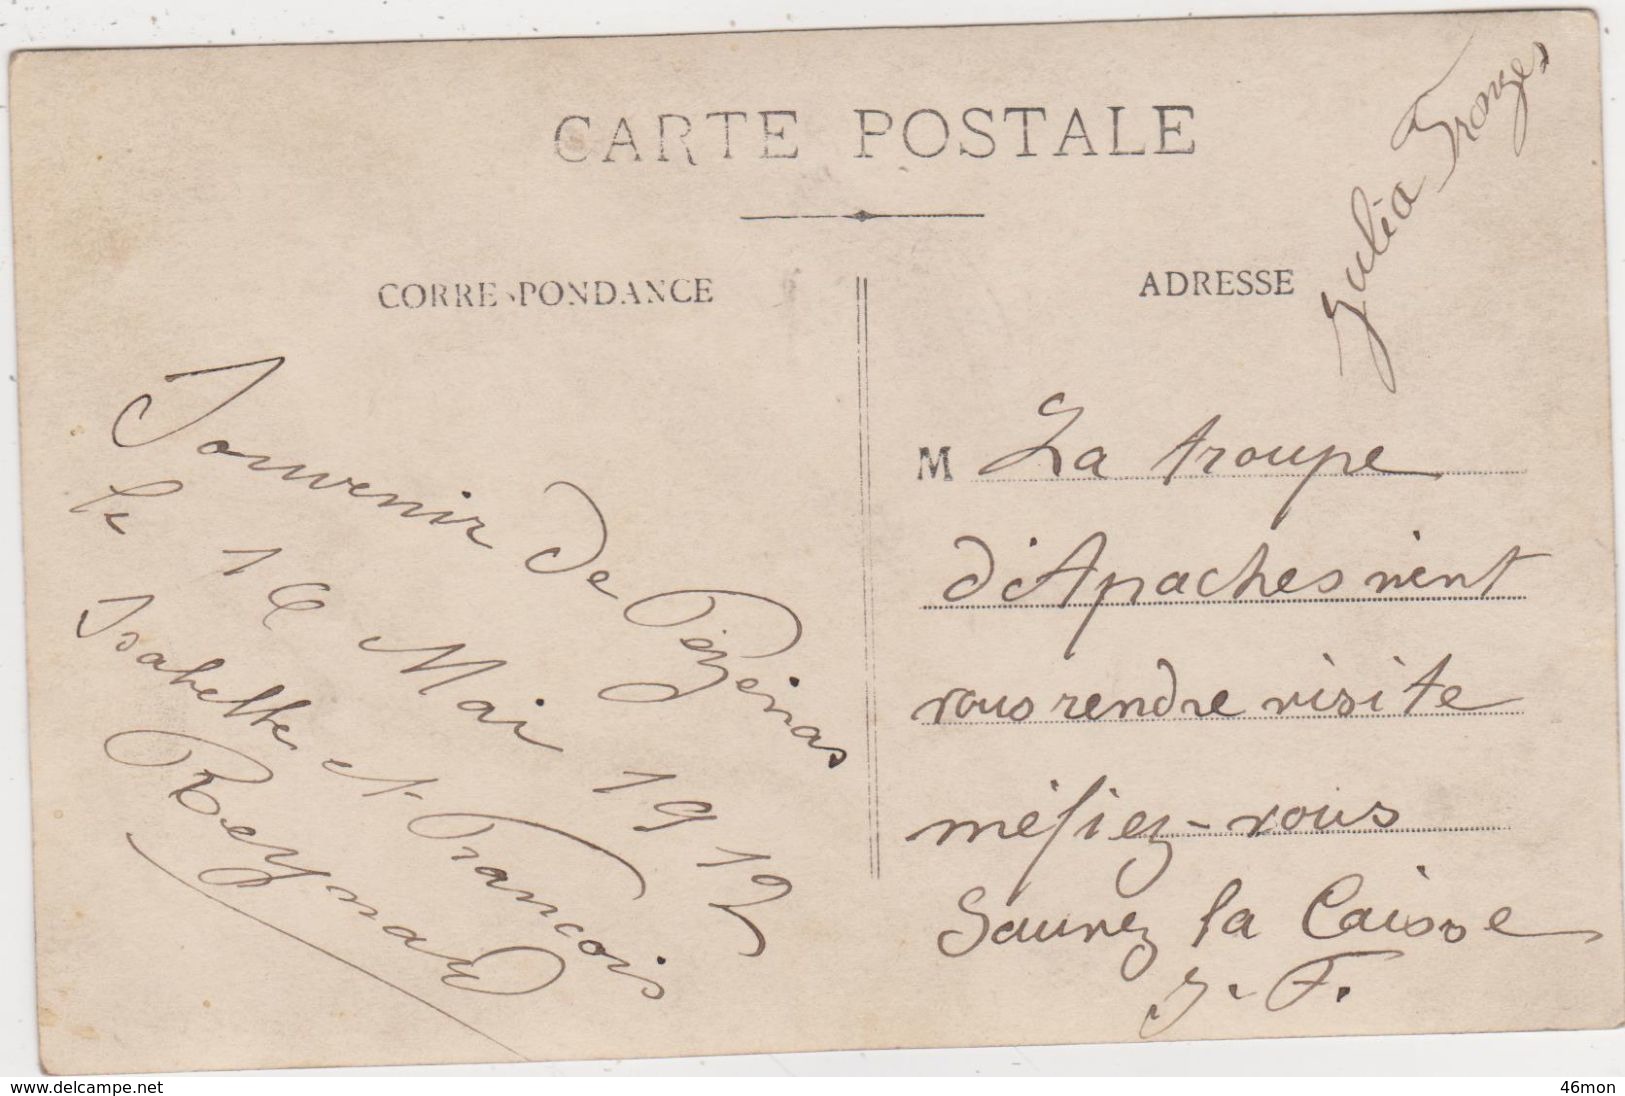 CARTE POSTALE
CORRESPONDANCE
ADRESSE
Julia
Souvenir de Pézenas
le 16 Mai 1912
Isabelle et François
Reynaud
M La troupe
d'Apaches vient
vous rendre visite
méfiez-vous
Sauvez la Caisse
J. F.
www.delcampe.net
46mon